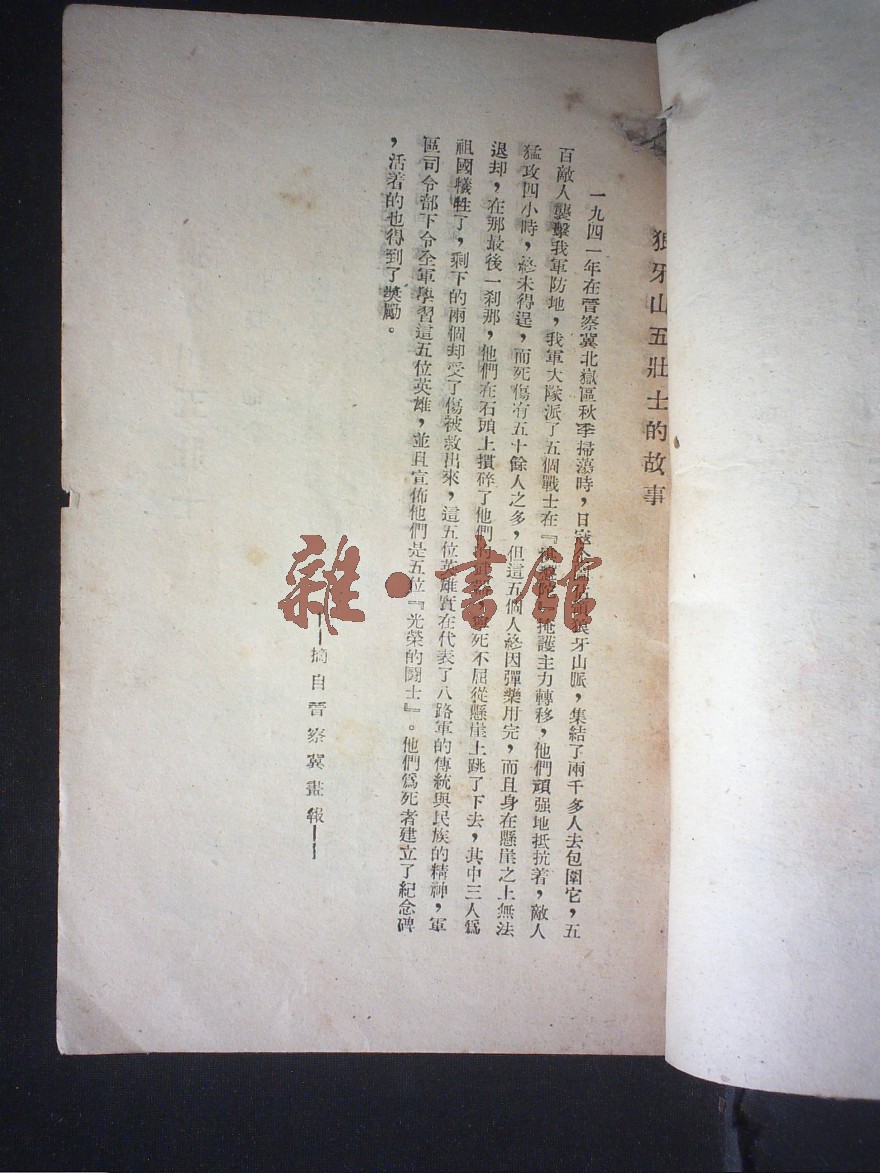 狼牙山五壯士的故事
一九四一年在晉察冀北嶽區秋季掃蕩時，日寇狼牙山脈，集結了兩千多人去包圍它，五
百敵人襲擊我軍防地，我軍大隊派了五個戰士在『掩護主力轉移，他們頑强地抵抗着，敵人
猛攻四小時，終未得逞，而死傷有五十餘人之多，但這五個人終因彈藥用完，而且身在懸崖之上無法
退却，在那最後一刹那，他們在石頭上摜碎了他們死不屈從懸崖上跳了下去，其中三人爲
祖國犧牲了，剩下的兩個却受了傷被救出來，這五位英雄實在代表了八路軍的傳統與民族的精神，軍
區司令部下令全軍學習這五位英雄，並且宣佈他們是五位『光榮的鬪士』。他們爲死者建立了紀念碑
，活着的也得到了奬勵。
——摘自晉察冀畫報——
雜·書館